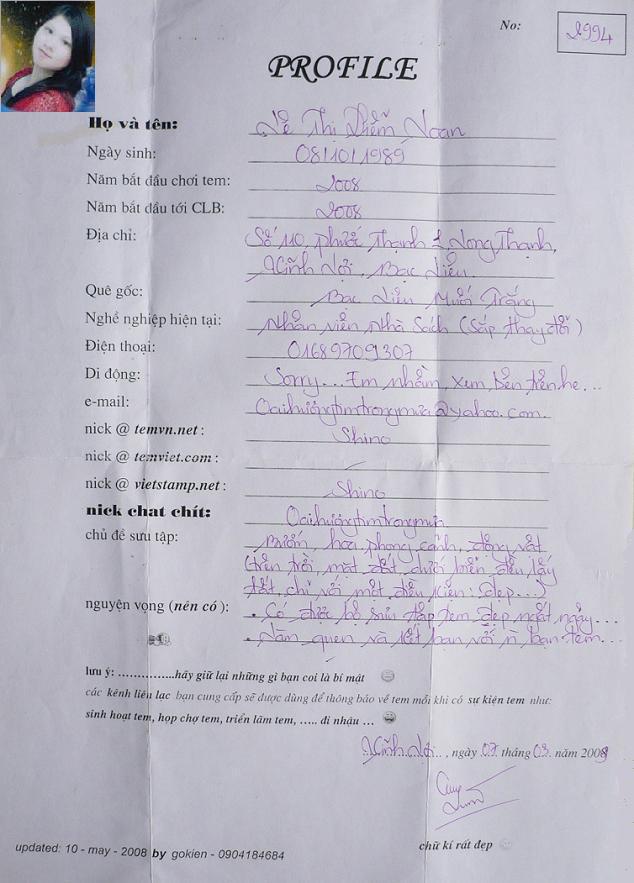 No: 2994
PROFILE
Họ và tên: Lê Thị Diễm Loan
Ngày sinh: 08/10/1989
Năm bắt dầu chơi tem: 2008
Năm bắt dầu tới CLB: 2008
Địa chỉ: Số 110, phước Thạnh 1, Long Thạnh,
Vĩnh Lợi, Bạc Liêu.
Quê gốc: Bạc Liêu Muối Trắng
Nghề nghiệp hiện tại: Nhân viên Nhà Sách (Sắp thay đổi)
Điện thoại: 01689709307
Di động: Sorry... Em nhầm, xem bên trên he...
e-mail: Oaihuongtimtrongmua@yahoo.com.
nick @ temvn.net : Shino
nick @ temviet.com :
nick @ vietstamp.net : Shino
nick chat chít: Oaihuongtimtrongmua
chủ đề sưu tập: Bướm, hoa, phong cảnh, động vật
(trên trời, mặt đất, dưới biển đều lấy
tất, chỉ với một điều kiện: đẹp...)
nguyện vọng (nén có ): . Có được bộ sưu tập tem đẹp ngất ngây...
. Làm quen và kết bạn với n bạn tem...
lưu ý: ...............hãy giữ lại những gì bạn coi là bí mật
các kênh liên lạc bạn cung cấp sẽ được dùng để thông báo về tem mỗi khi có sư kiện tem như:
sinh hoạt tem, họp chợ tem, triển lãm tem, ..... đi nhậu ...
Vĩnh Lợi, ngày 07 tháng 03 năm 2009
chữ kí rất đẹp
updated: 10 - may - 2008 by gokien - 0904184684